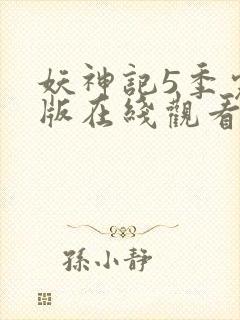 妖神記5季
版在綫觀看
孫小靜